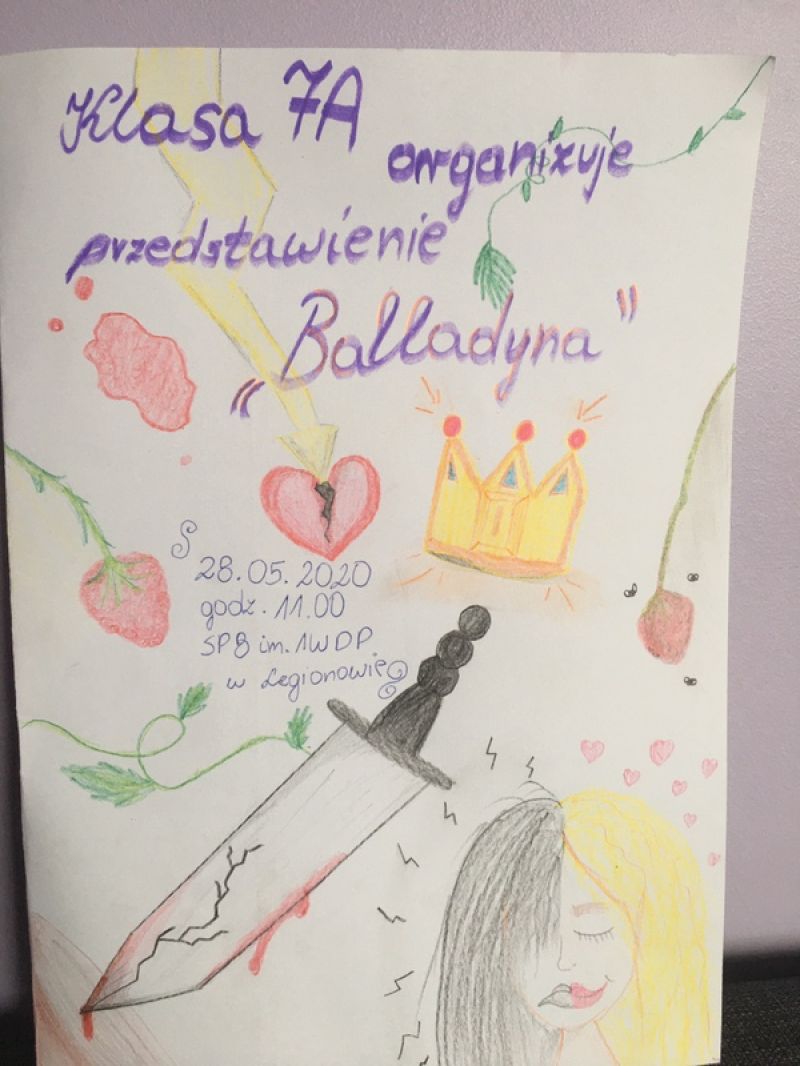 Klasa 7A
organizuje
przedstawienie
„Balladyna"
28.05.2020
godz. 11.00
SP8 im. 1WDP
w Legionowie